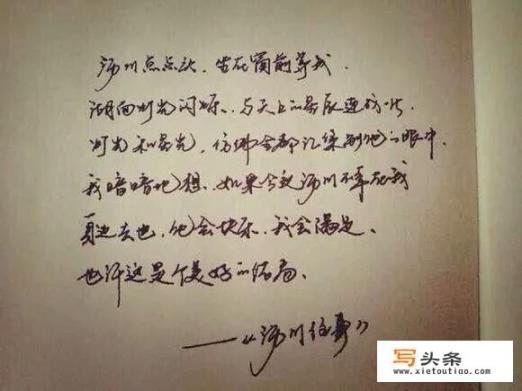 沥川点点头,坐在窗前等我.
湖面灯光闪烁,与天上的星辰连成一片.
灯光和星光,仿佛全都汇集到他的眼中.
我暗暗地想,如果今夜沥川不幸在我
身边去世,他会快乐,我会满足.
也许这是个美好的结局.
——《沥川往事》
写头条
www.xietoutiao.com